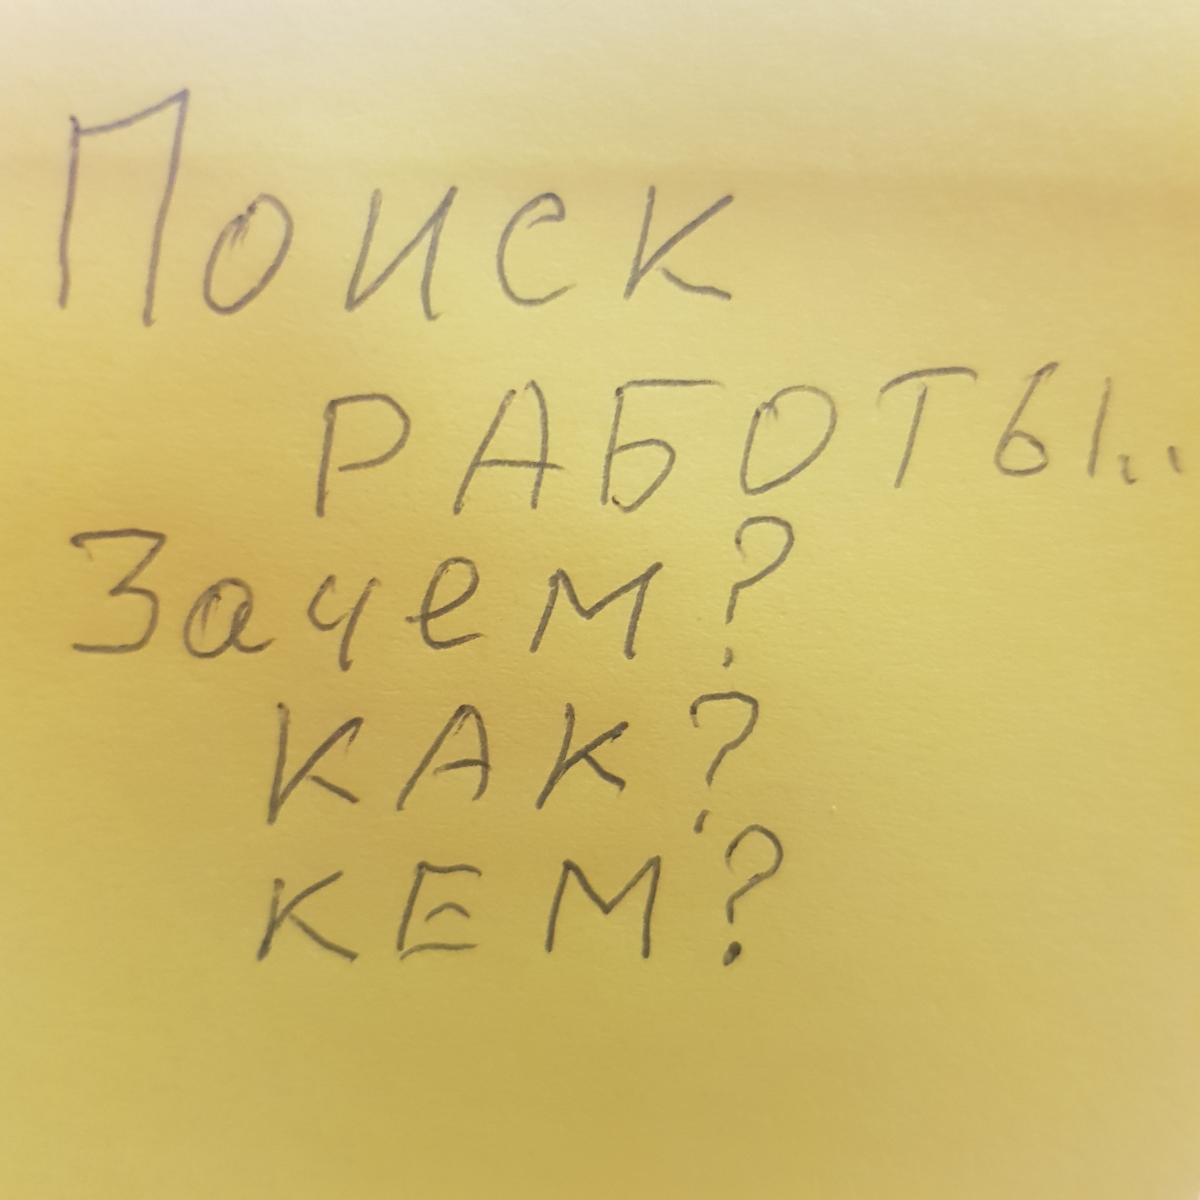 Поиск
РАБОТЫ...
Зачем?
КАК?
КЕМ?